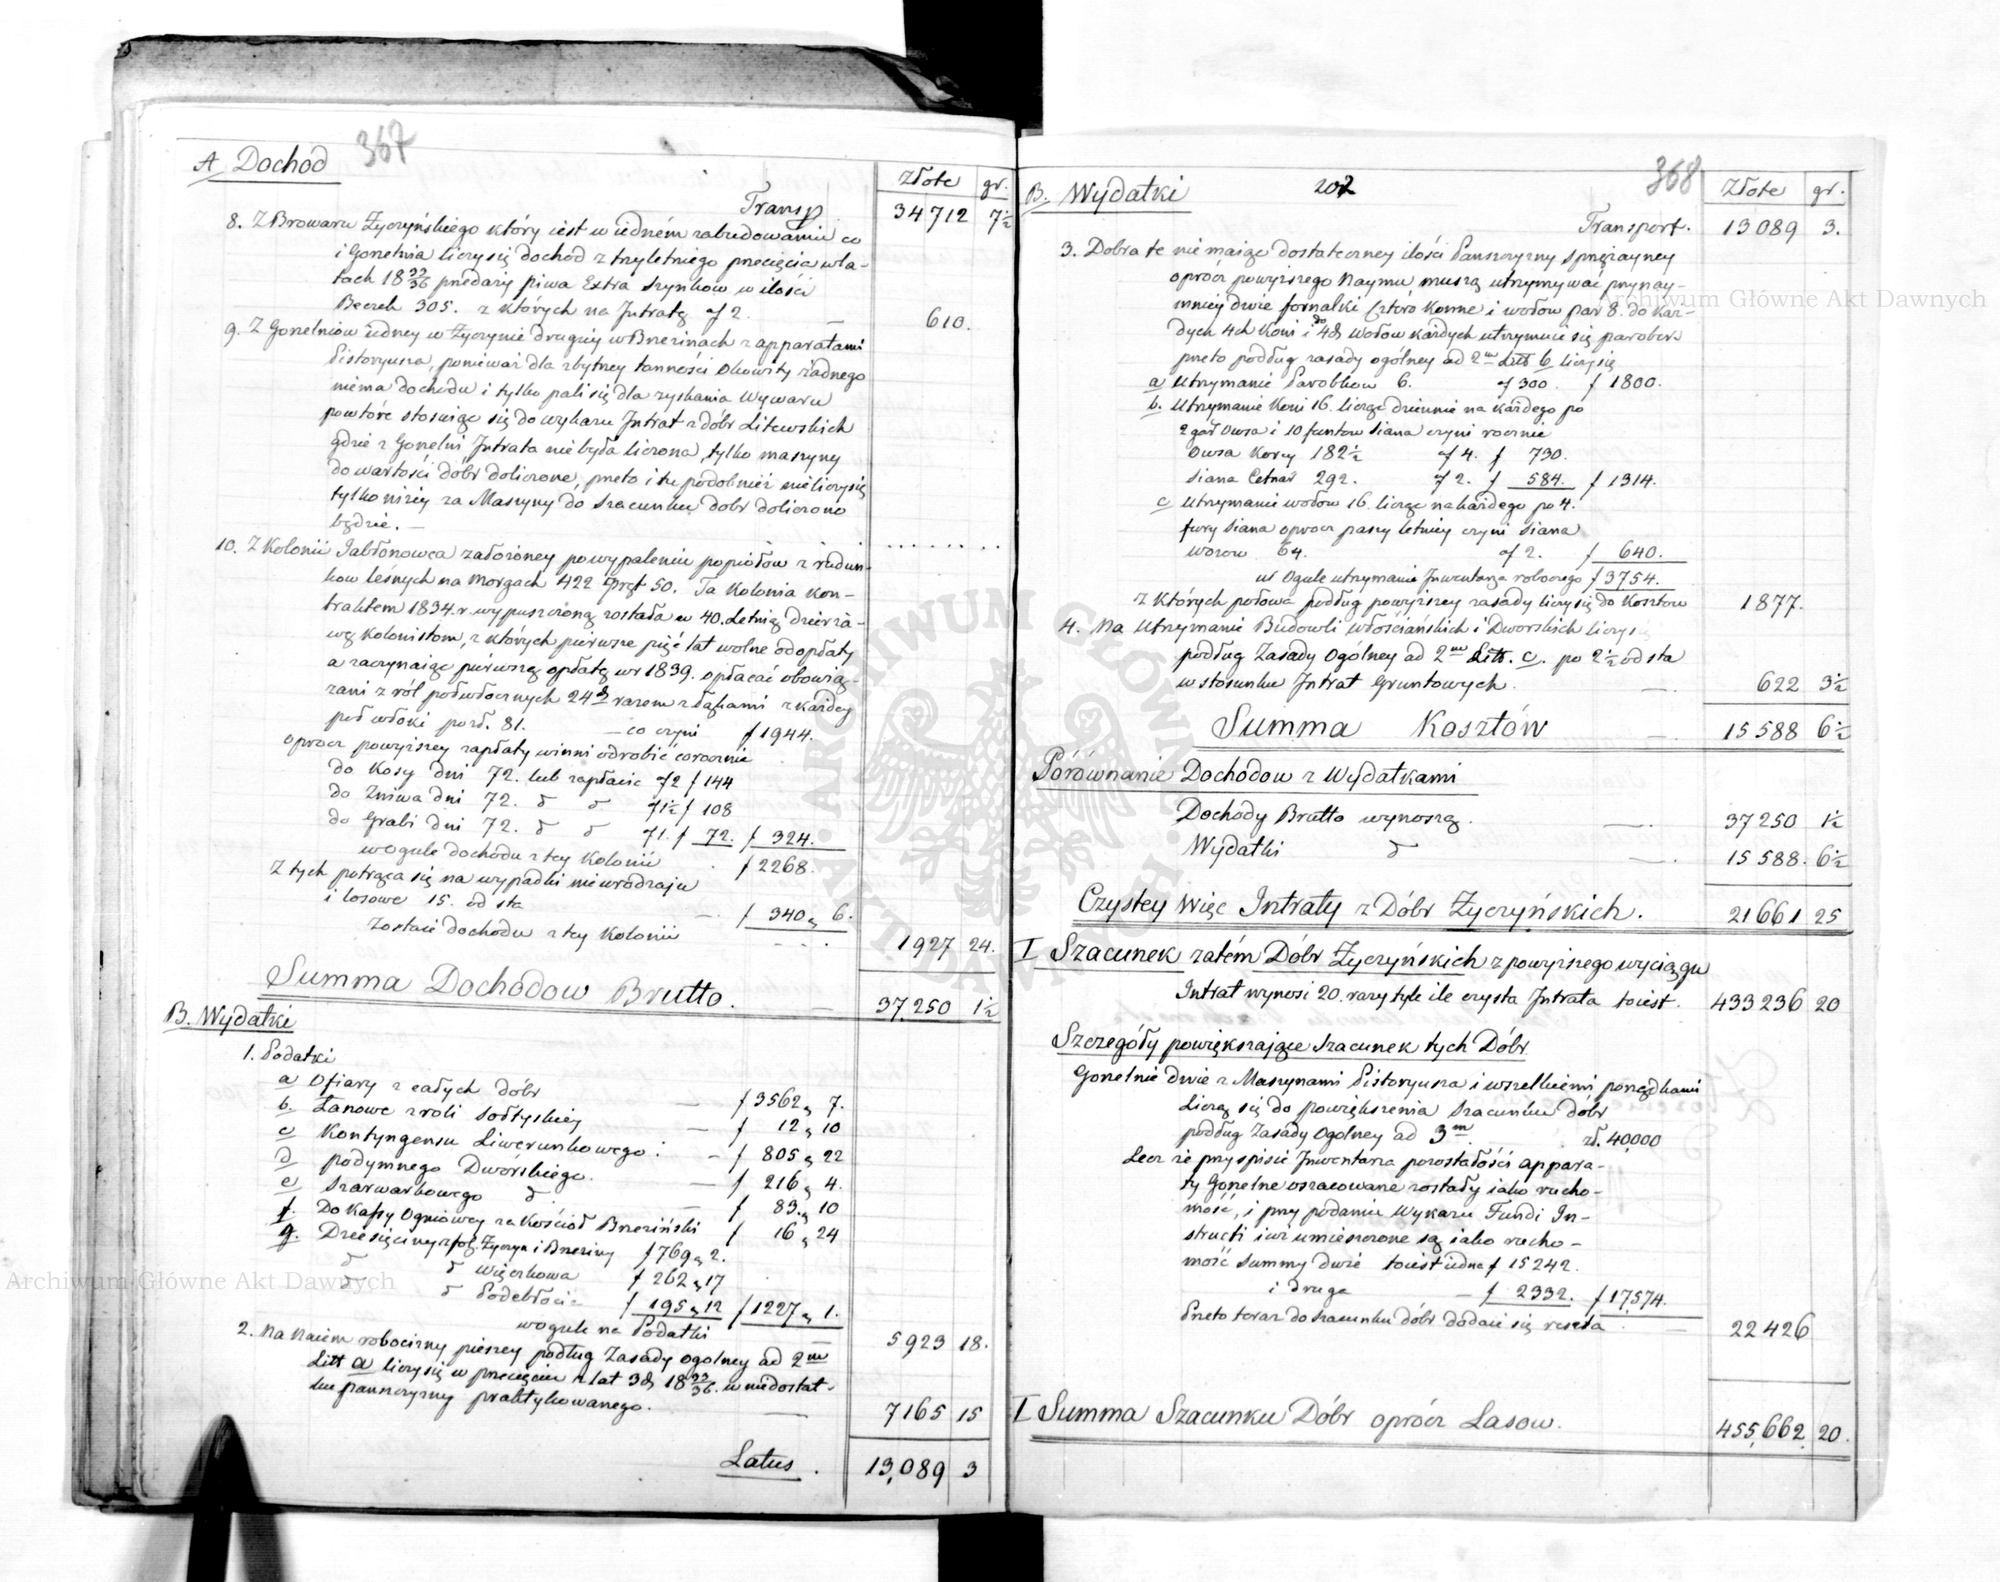 367
A Dochod
Złote gr.
Transp. 34712 7½
8. Z Browaru Życzyńskiego który iest w iedném zabudowaniu co
i Gorzelnia liczy się dochód z trzyletniego przecięcia w la-
tach 18 33/36 przedaży piwa Extra Szynkow w ilości
Beczek 305. z których na Intratę af 2. — 610.
9. Z Gorzelniów iedney w Życzynie drugiey w Brzezinach z apparatami
Pistoryusza, ponieważ dla zbytney tanności Okowity żadnego
niema dochodu i tylko pali się dla zyskania Wywaru
powtóre stosuiąc się do wykazu Intrat z dóbr Litewskich
gdzie z Gorzelni Intrata nie była liczona, tylko maszyny
do wartości dóbr doliczone, przeto i tu podobnież nieliczy się
tylko niżéy za Maszyny do Szacunku dobr doliczono
będzie. —
10. Z Kolonii Jabłonowca założoney po wypaleniu popiołow z
leśnych na Morgach 422 Pręt 50. Ta Kolonia kon-
traktem 1834. r. wypuszczoną została w 40. Letnią dzierża-
wę Kolonistom, z których pierwsze pięć lat wolne od opłaty
a zaczynaiąc pierwszą opłatę w r 1839. opłacać obowią-
zani z ról półwłocznych 24 razem z łąkami z każdey
pół włoki po zł. 81. — co czyni f 1944.
oprocz powyższey zapłaty winni odrobić corocznie
do Kosy dni 72. lub zapłacić af 2 f 144
do Zniwa dni 72. d d f 1½ f 108
do Grabi dni 72. d d f 1. f 72. f 324.
wogule dochodu z tey Kolonii f 2268.
Z tych potrąca się na wypadki nieurodzaju
i losowe 15. od sta — f 340 „ 6.
zostaie dochodu z tey Kolonii 1927 24.
Summa Dochodow Brutto. — 37,250 1½
B. Wydatki
1. Podatki
a Ofiary z całych dóbr — f 3562 „ 7.
b. Łanowe z roli Sołtyskiey — f 12 „ 10
c Kontyngensu Liwerunkowego — f 805 „ 22
d podymnego Dworskiego. — f 216 „ 4.
e Szarwarkowego d — f 83. „ 10
f. Do Kassy Ogniowey za Kościół Brzeziński f 16 „ 24
g. Dziesięciny z fol. Życzyn i Brzeziny f 769 „ 2.
d d Więckowa f 262 „ 17
d d Podebłocie f 195 „ 12 f 1227 „ 1.
wogule na Podatki — 5923 18.
2. Na Naiem robocizny pieszey podług Zasady ogolney ad 2m
Litt a liczy się w przecięciu z lat 3ch 18 33/36. w niedostat-
ku panszczyzny praktykowanego. — 7165 15
Latus. 13,089 3
368
207
B. Wydatki
Złote gr.
Transport. 13089 3.
3. Dobra te nie maiąc dostateczney ilości Panszczyzny Sprzężayney
oprócz powyższego Naymu muszą utrzymywać przynay-
mniey dwie fornalki Cztéro Konne i wołow par 8. do każ-
dych 4ch Koni i do 4ch wołow każdych utrzymuie się parobcz.
przeto podług zasady ogólney ad 2m Litt b liczy się
a Utrzymanie Parobkow 6. af 300. f 1800.
b. Utrzymanie Koni 16. licząc dziennie na każdego po
2 gar Owsa i 10 funtow Siana czyni rocznie
Owsa Korcy 182½ af 4. f 730.
Siana Cetnar 292. af 2. f 584. f 1314.
c Utrzymanie wołow 16. licząc na każdego po 4.
fury Siana oprocz paszy letniey czyni Siana
wozow 64. af 2. f 640.
w Ogule utrzymanie Inwentarza roboczego f 3754.
z Których połowa podług powyższey zasady liczy się do Kosztow 1877.
4. Na Utrzymanie Budowli Włościańskich i Dworskich liczy się
podług Zasady Ogólney ad 2m Litt. c. po 2½ od sta
w stosunku Intrat Gruntowych. — 622 3½
Summa Kosztów — 15588 6½
Porównanie Dochodow z Wydatkami
Dochody Brutto wynoszą. — 37250 1½
Wydatki d — 15588. 6½
Czystey więc Intraty z Dóbr Życzyńskich. 21661 25
I Szacunek zatém Dóbr Życzyńskich z powyższego wyciągu
Intrat wynosi 20. razy tyle ile czysta Intrata to iest. 433236 20
Szczegóły powiększaiące Szacunek tych Dóbr
Gorzelnie dwie z Maszynami Pistoryusza i wszelkiemi porządkami
Liczą się do powiększenia Szacunku dóbr
podług Zasady Ogolney ad 3m. zł. 40,000
Lecz że przy spisie Inwentarza pozostałości appara-
ty Gorzelne oszacowane zostały iako rucho-
mość, i przy podaniu Wykazu Fundi In-
structi iuż umieszczone są iako rucho-
mość Summy dwie to iest iedna f 15242.
i druga — f 2332. f 17,574.
Przeto teraz do szacunku dóbr dodaie się reszta — 22426
I Summa Szacunku Dóbr oprócz Lasow. 455,662 20.
Archiwum Główne Akt Dawnych
Archiwum Główne Akt Dawnych
ARCHIWUM GŁÓWNE AKT DAWNYCH